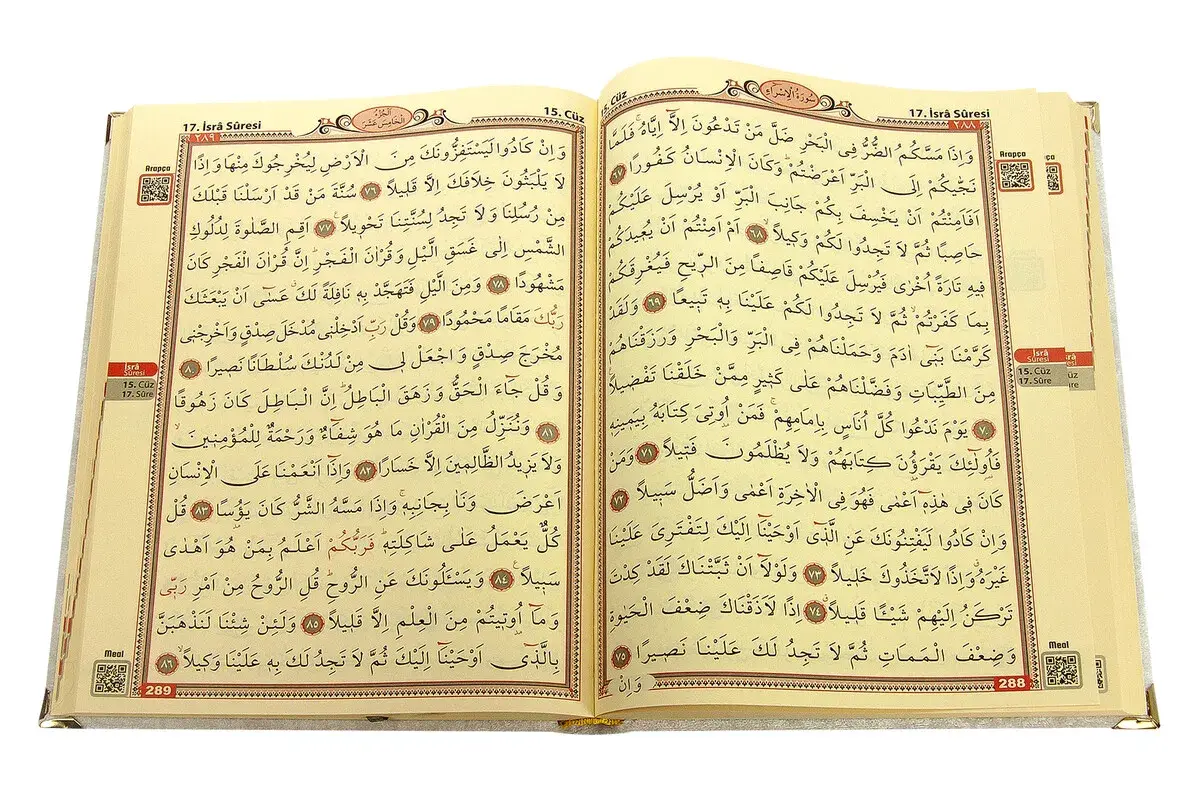 17. İsrâ Sûresi
سُورَةُ الْاِسْرَاءِ
15. Cüz
٢٨٨
وَاِذَا مَسَّكُمُ الضُّرُّ فِى الْبَحْرِ ضَلَّ مَنْ تَدْعُونَ اِلَّٓا اِيَّاهُۚ فَلَمَّا
نَجّٰيكُمْ اِلَى الْبَرِّ اَعْرَضْتُمْۜ وَكَانَ الْاِنْسَانُ كَفُورًا ﴿٦٧﴾
اَفَاَمِنْتُمْ اَنْ يَخْسِفَ بِكُمْ جَانِبَ الْبَرِّ اَوْ يُرْسِلَ عَلَيْكُمْ
حَاصِبًا ثُمَّ لَا تَجِدُوا لَكُمْ وَكِيلًاۙ ﴿٦٨﴾ اَمْ اَمِنْتُمْ اَنْ يُعِيدَكُمْ
فِيهِ تَارَةً اُخْرٰى فَيُرْسِلَ عَلَيْكُمْ قَاصِفًا مِنَ الرِّيحِ فَيُغْرِقَكُمْ
بِمَا كَفَرْتُمْۙ ثُمَّ لَا تَجِدُوا لَكُمْ عَلَيْنَا بِه۪ تَب۪يعًا ﴿٦٩﴾ وَلَقَدْ
كَرَّمْنَا بَن۪ٓى اٰدَمَ وَحَمَلْنَاهُمْ فِى الْبَرِّ وَالْبَحْرِ وَرَزَقْنَاهُمْ
مِنَ الطَّيِّبَاتِ وَفَضَّلْنَاهُمْ عَلٰى كَث۪يرٍ مِمَّنْ خَلَقْنَا تَفْض۪يلًا۟
﴿٧٠﴾ يَوْمَ نَدْعُوا كُلَّ اُنَاسٍ بِاِمَامِهِمْۚ فَمَنْ اُو۫تِىَ كِتَابَهُ بِيَم۪ينِه۪
فَاُو۬لٰٓئِكَ يَقْرَؤُ۫نَ كِتَابَهُمْ وَلَا يُظْلَمُونَ فَت۪يلًا ﴿٧١﴾ وَمَنْ
كَانَ ف۪ى هٰذِه۪ٓ اَعْمٰى فَهُوَ فِى الْاٰخِرَةِ اَعْمٰى وَاَضَلُّ سَب۪يلًا ﴿٧٢﴾
وَاِنْ كَادُوا لَيَفْتِنُونَكَ عَنِ الَّذ۪ٓى اَوْحَيْنَٓا اِلَيْكَ لِتَفْتَرِىَ عَلَيْنَا
غَيْرَهُۗ وَاِذًا لَاتَّخَذُوكَ خَل۪يلًا ﴿٧٣﴾ وَلَوْلَٓا اَنْ ثَبَّتْنَاكَ لَقَدْ كِدْتَ
تَرْكَنُ اِلَيْهِمْ شَيْـًٔا قَل۪يلًاۗ ﴿٧٤﴾ اِذًا لَاَذَقْنَاكَ ضِعْفَ الْحَيٰوةِ
وَضِعْفَ الْمَمَاتِ ثُمَّ لَا تَجِدُ لَكَ عَلَيْنَا نَص۪يرًا ﴿٧٥﴾
288
وَاِنْ
Arapça
İsrâ
Sûresi
15. Cüz
17. Sûre
Meal
15. Cüz
اَلْجُزْءُ الْخَامِسَ عَشَرَ
17. İsrâ Sûresi
٢٨٩
وَاِنْ كَادُوا لَيَسْتَفِزُّونَكَ مِنَ الْاَرْضِ لِيُخْرِجُوكَ مِنْهَا وَاِذًا
لَا يَلْبَثُونَ خِلَافَكَ اِلَّا قَل۪يلًا ﴿٧٦﴾ سُنَّةَ مَنْ قَدْ اَرْسَلْنَا قَبْلَكَ
مِنْ رُسُلِنَا وَلَا تَجِدُ لِسُنَّتِنَا تَحْو۪يلًا۟ ﴿٧٧﴾ اَقِمِ الصَّلٰوةَ لِدُلُوكِ
الشَّمْسِ اِلٰى غَسَقِ الَّيْلِ وَقُرْاٰنَ الْفَجْرِۜ اِنَّ قُرْاٰنَ الْفَجْرِ كَانَ
مَشْهُودًا ﴿٧٨﴾ وَمِنَ الَّيْلِ فَتَهَجَّدْ بِه۪ نَافِلَةً لَكَۗ عَسٰٓى اَنْ يَبْعَثَكَ
رَبُّكَ مَقَامًا مَحْمُودًا ﴿٧٩﴾ وَقُلْ رَبِّ اَدْخِلْن۪ى مُدْخَلَ صِدْقٍ وَاَخْرِجْن۪ى
مُخْرَجَ صِدْقٍ وَاجْعَلْ ل۪ى مِنْ لَدُنْكَ سُلْطَانًا نَص۪يرًا ﴿٨٠﴾
وَقُلْ جَٓاءَ الْحَقُّ وَزَهَقَ الْبَاطِلُۜ اِنَّ الْبَاطِلَ كَانَ زَهُوقًا
﴿٨١﴾ وَنُنَزِّلُ مِنَ الْقُرْاٰنِ مَا هُوَ شِفَٓاءٌ وَرَحْمَةٌ لِلْمُؤْمِن۪ينَۙ
وَلَا يَز۪يدُ الظَّالِم۪ينَ اِلَّا خَسَارًا ﴿٨٢﴾ وَاِذَٓا اَنْعَمْنَا عَلَى الْاِنْسَانِ
اَعْرَضَ وَنَاٰ بِجَانِبِه۪ۚ وَاِذَا مَسَّهُ الشَّرُّ كَانَ يَؤُ۫سًا ﴿٨٣﴾ قُلْ
كُلٌّ يَعْمَلُ عَلٰى شَاكِلَتِه۪ۜ فَرَبُّكُمْ اَعْلَمُ بِمَنْ هُوَ اَهْدٰى
سَب۪يلًا۟ ﴿٨٤﴾ وَيَسْـَٔلُونَكَ عَنِ الرُّوحِۜ قُلِ الرُّوحُ مِنْ اَمْرِ رَبّ۪ى
وَمَٓا اُو۫ت۪يتُمْ مِنَ الْعِلْمِ اِلَّا قَل۪يلًا ﴿٨٥﴾ وَلَئِنْ شِئْنَا لَنَذْهَبَنَّ
بِالَّذ۪ٓى اَوْحَيْنَٓا اِلَيْكَ ثُمَّ لَا تَجِدُ لَكَ بِه۪ عَلَيْنَا وَك۪يلًاۙ ﴿٨٦﴾
289
Arapça
İsrâ
Sûresi
15. Cüz
17. Sûre
Meal